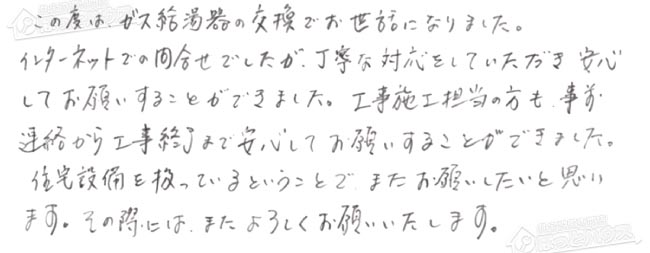 この度は、ガス給湯器の交換でお世話になりました。
インターネットでの問合せでしたが、丁寧な対応をしていただき安心
してお願いすることができました。工事施工担当の方も、事前
連絡から工事終了まで安心してお願いすることができました。
住宅設備を扱っているということで、またお願いしたいと思い
ます。その際には、またよろしくお願いいたします。